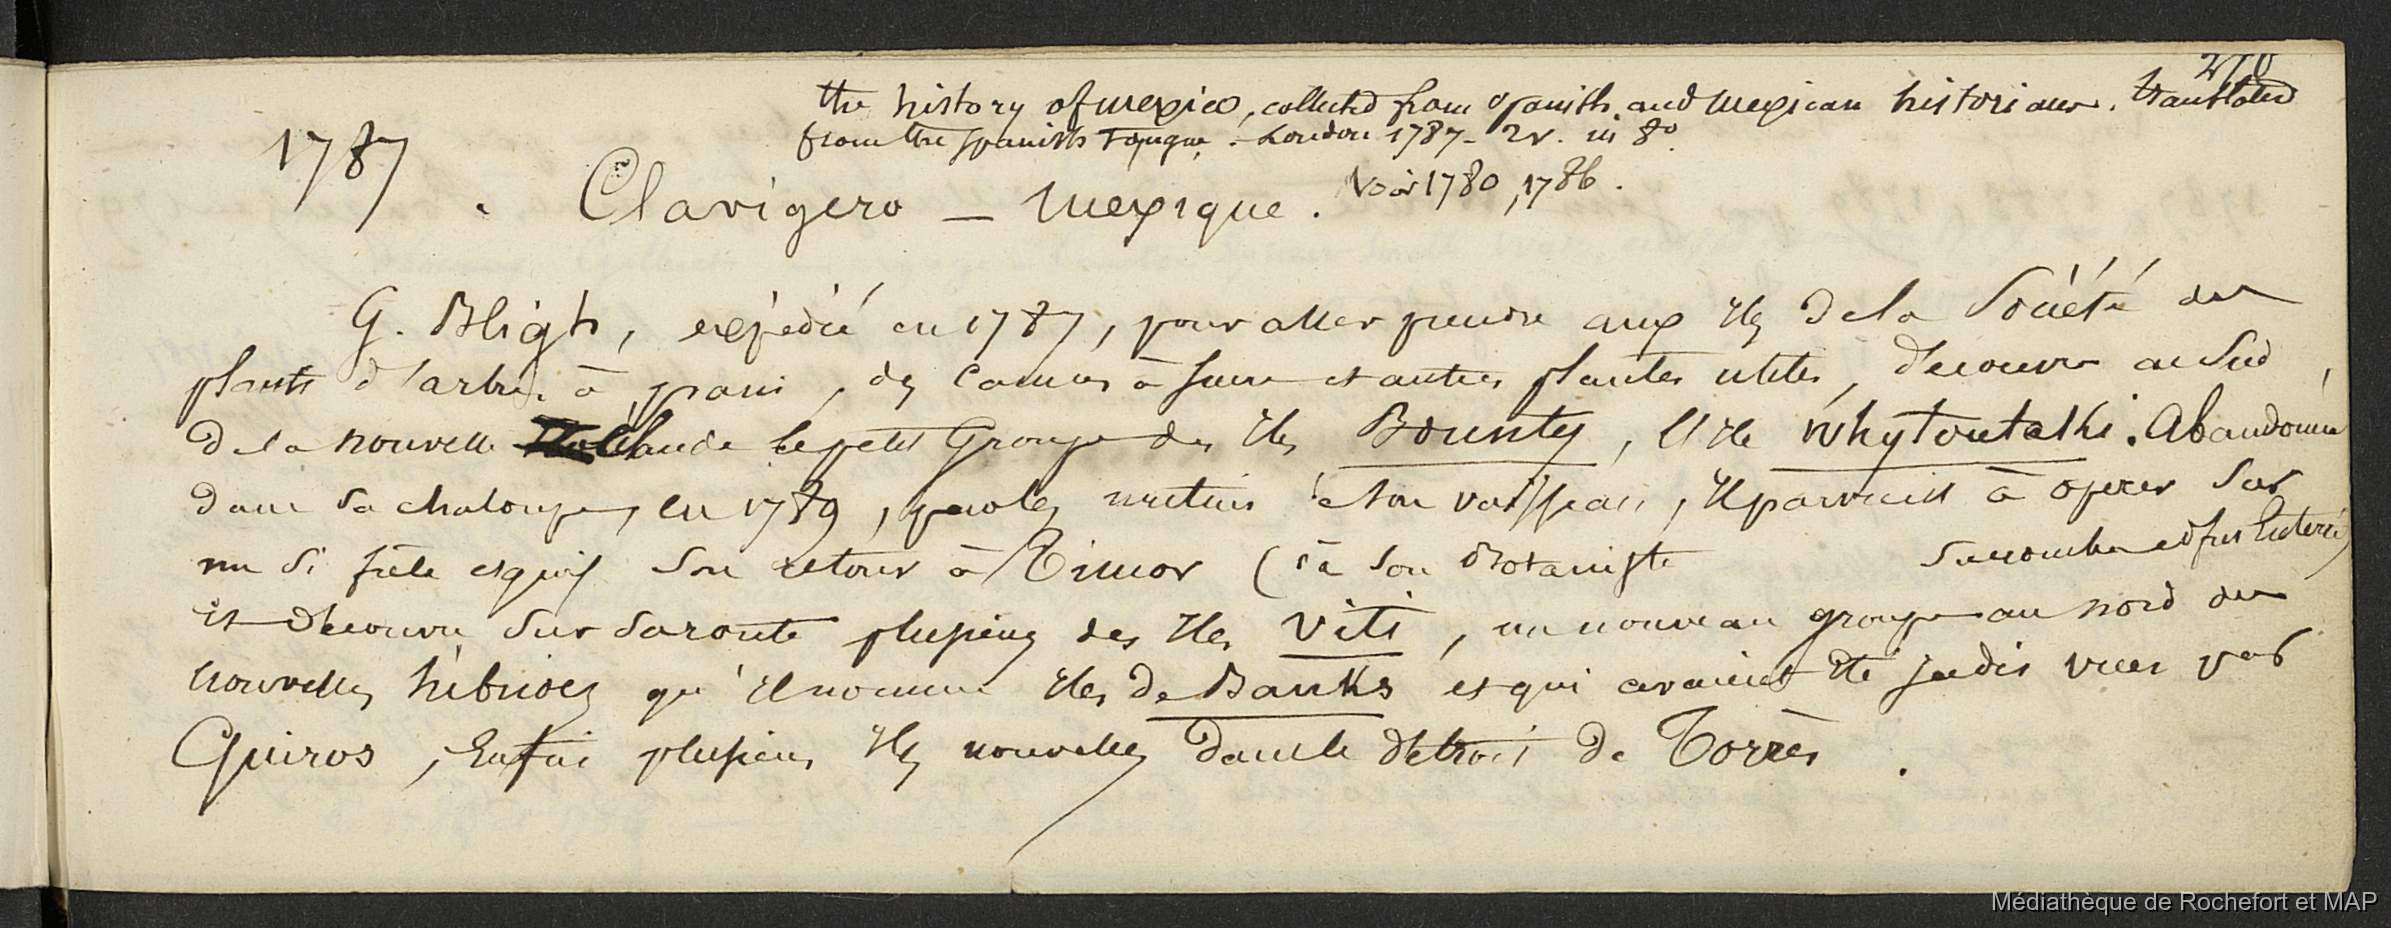 270
the history of mexico, collected from spanish and mexican historians. translated
from the spanish tongue. - London 1787 - 2 v. in 8º.
1787. Clavigero — mexique. Voir 1780, 1786.
G. Bligh, expédié en 1787, pour aller prendre aux Iles de la Société des
plants d'arbre à pain, des cannes à sucre et autres plantes utiles, découvre au Sud
de la nouvelle Zélande le petit Groupe des Iles Bounty, l'Ile Whytoutaki. Abandonné
dans sa chaloupe, en 1789, par les mutins de son vaisseau, il parvient à opérer sur
un si frêle esquif son retour à Timor (là son Botaniste succomba et fut Enterré)
et découvre sur sa route plusieurs des Iles Viti, un nouveau groupe au nord des
nouvelles hébrides qu'il nomme Iles de Banks et qui avaient été jadis vues par
Quiros, Enfin plusieurs Iles nouvelles dans le détroit de Torrès.
Médiathèque de Rochefort et MAP